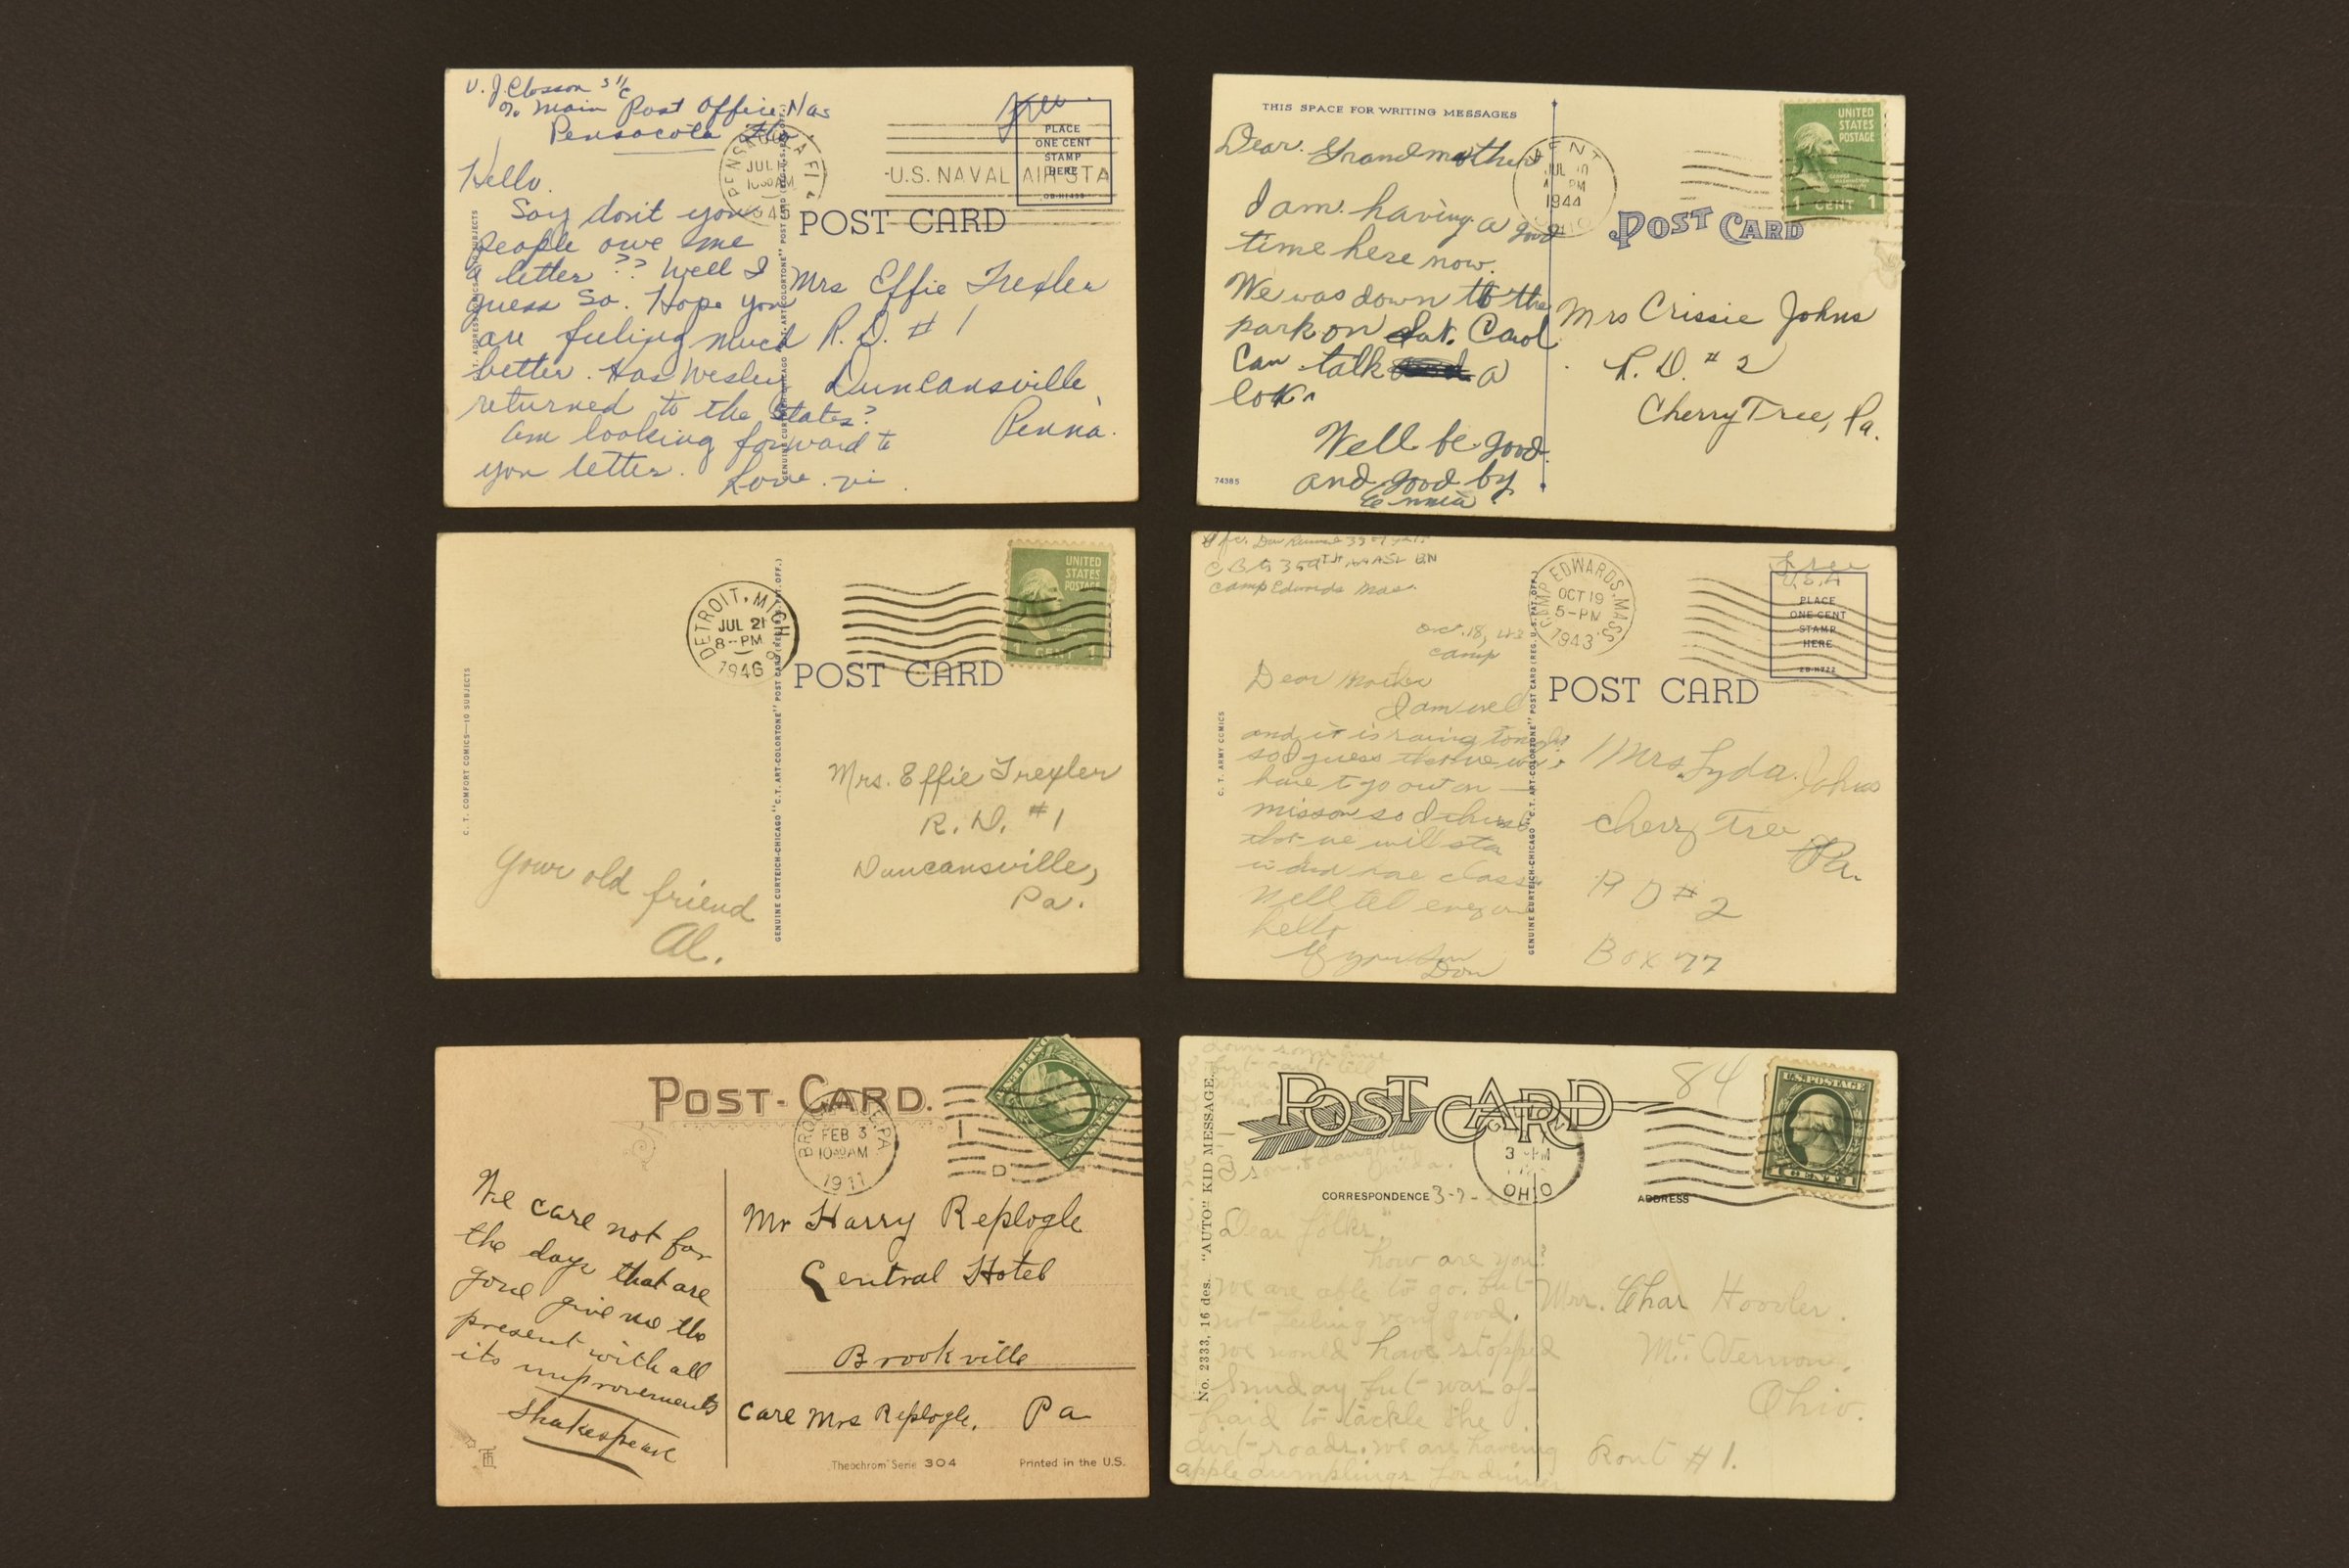 V. J. Closson S 1/c
% Main Post Office, Nas
Pensacola Fla.
PENSACOLA FLA
JUL
10 30 AM
1945
U.S. NAVAL AIR STA
Free
PLACE
ONE CENT
STAMP
HERE
POST CARD
Hello.
Say don't you
people owe me
a letter?? Well I
guess so. Hope you
are feeling much
better. Has Wesley
returned to the States?
Am looking forward to
you letter.
Love. Vi
Mrs Effie Trexler
R. D. # 1
Duncansville,
Penna.
GENUINE CURTEICH-CHICAGO "C.T. ART-COLORTONE" POST CARD (REG. U.S. PAT. OFF.)
THIS SPACE FOR WRITING MESSAGES
Dear Grandmother
I am having a good
time here now.
We was down to the
park on Sat. Carol
Can talk a
lot.
Well be good
and good by
74385
JUL
PM
1944
OHIO
UNITED
STATES
POSTAGE
1 CENT 1
POST CARD
Mrs Crissie Johns
R. D. # 2
Cherry Tree, Pa.
C. T. COMFORT COMICS—10 SUBJECTS
DETROIT, MICH.
JUL 21
8-PM
1946
UNITED
STATES
POSTAGE
1 CENT 1
POST CARD
GENUINE CURTEICH-CHICAGO "C.T. ART-COLORTONE" POST CARD (REG. U.S. PAT. OFF.)
Your old friend
Al.
Mrs. Effie Trexler
R. D. #1
Duncansville,
Pa.
Pfc. Don
Camp Edwards Mass.
Oct. 18, 43
Camp
CAMP EDWARDS, MASS.
OCT 19
5-PM
1943
Free
PLACE
ONE CENT
STAMP
HERE
POST CARD
C. T. ARMY COMICS
GENUINE CURTEICH-CHICAGO "C.T. ART-COLORTONE" POST CARD (REG. U.S. PAT. OFF.)
Dear Mother
I am well
and it is raing tonight
so I guess that we
have to go out on
misson so I think
that we will sta
in and have class
Well tell everyone
hello
your Son
Don
Mrs. Lyda Johns
Cherry Tree
Pa.
R D # 2
Box 77
POST-CARD.
BROOKVILLE, PA
FEB 3
10 30 AM
1911
We care not for
the days that are
gone give us the
present with all
its improvements
Shakespeare
Mr Harry Replogle
Central Hotel
Brookville
Care Mrs Replogle, Pa
Theochrom Serie 304
Printed in the U.S.
down some time
but can't tell
when.
POST CARD
84
U.S. POSTAGE
1 CENT 1
3 PM
OHIO
son & daughter
CORRESPONDENCE
3-7-
ADDRESS
No. 2333, 16 des. "AUTO" KID MESSAGE.
Dear folks,
how are you?
we are able to go but
not feeling very good.
we would have stopped
Sunday but was af-
raid to tackle the
dirt roads. we are having
apple dumplings for dinner
Mrs. Chas Hoovler.
Mt. Vernon,
Ohio.
Rout # 1.